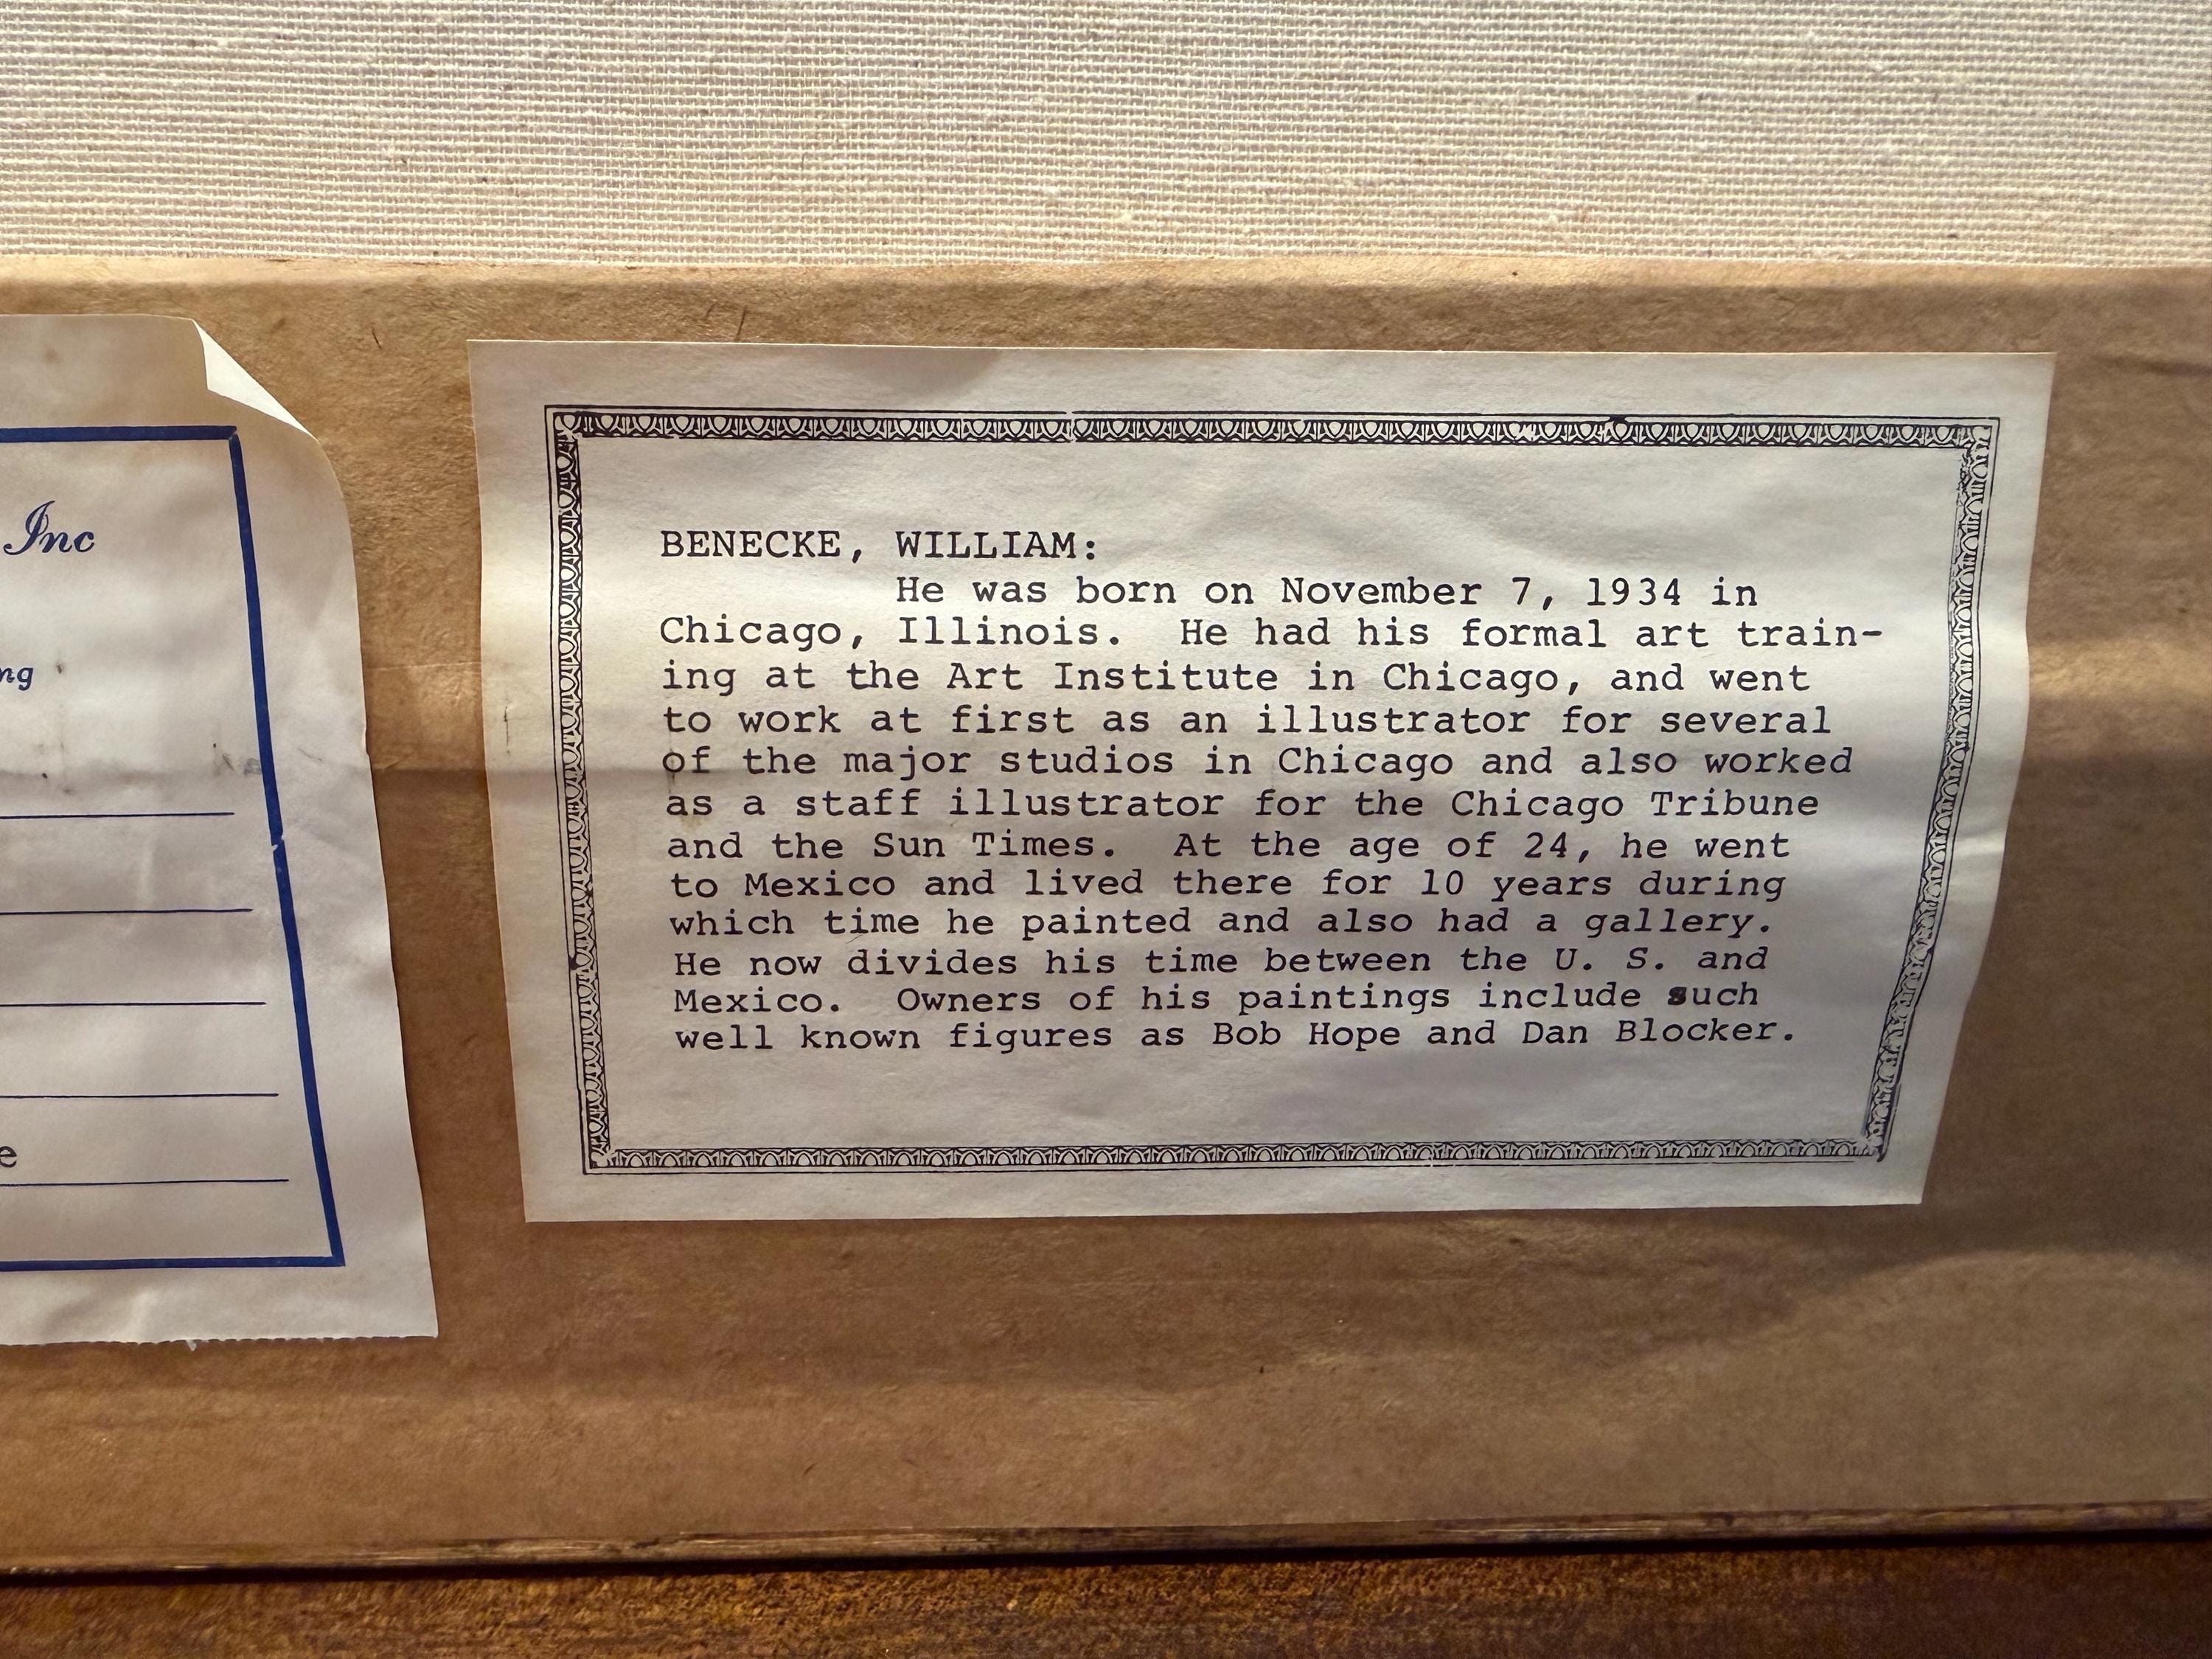 Inc
BENECKE, WILLIAM:
He was born on November 7, 1934 in
Chicago, Illinois. He had his formal art train-
ing at the Art Institute in Chicago, and went
to work at first as an illustrator for several
of the major studios in Chicago and also worked
as a staff illustrator for the Chicago Tribune
and the Sun Times. At the age of 24, he went
to Mexico and lived there for 10 years during
which time he painted and also had a gallery.
He now divides his time between the U. S. and
Mexico. Owners of his paintings include such
well known figures as Bob Hope and Dan Blocker.